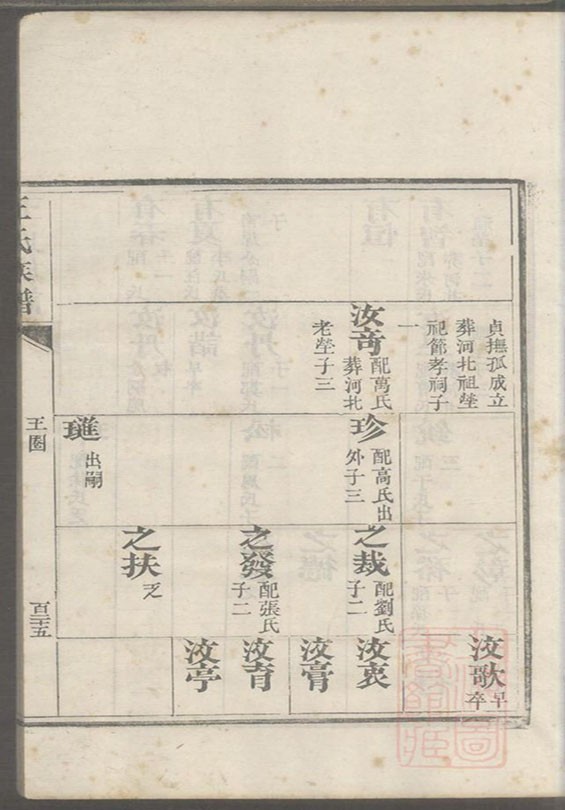 貞撫孤成立
葬河北祖塋
祀節孝祠子
一
汝奇
配萬氏
葬河北
老塋子三
珍
配高氏出
外子三
璡
出嗣
之裁
配劉氏
子二
之發
配張氏
子二
之扶
乏
汝歌
早
卒
汝衷
汝膏
汝育
汝亭
王氏族譜
王圈
百三十五